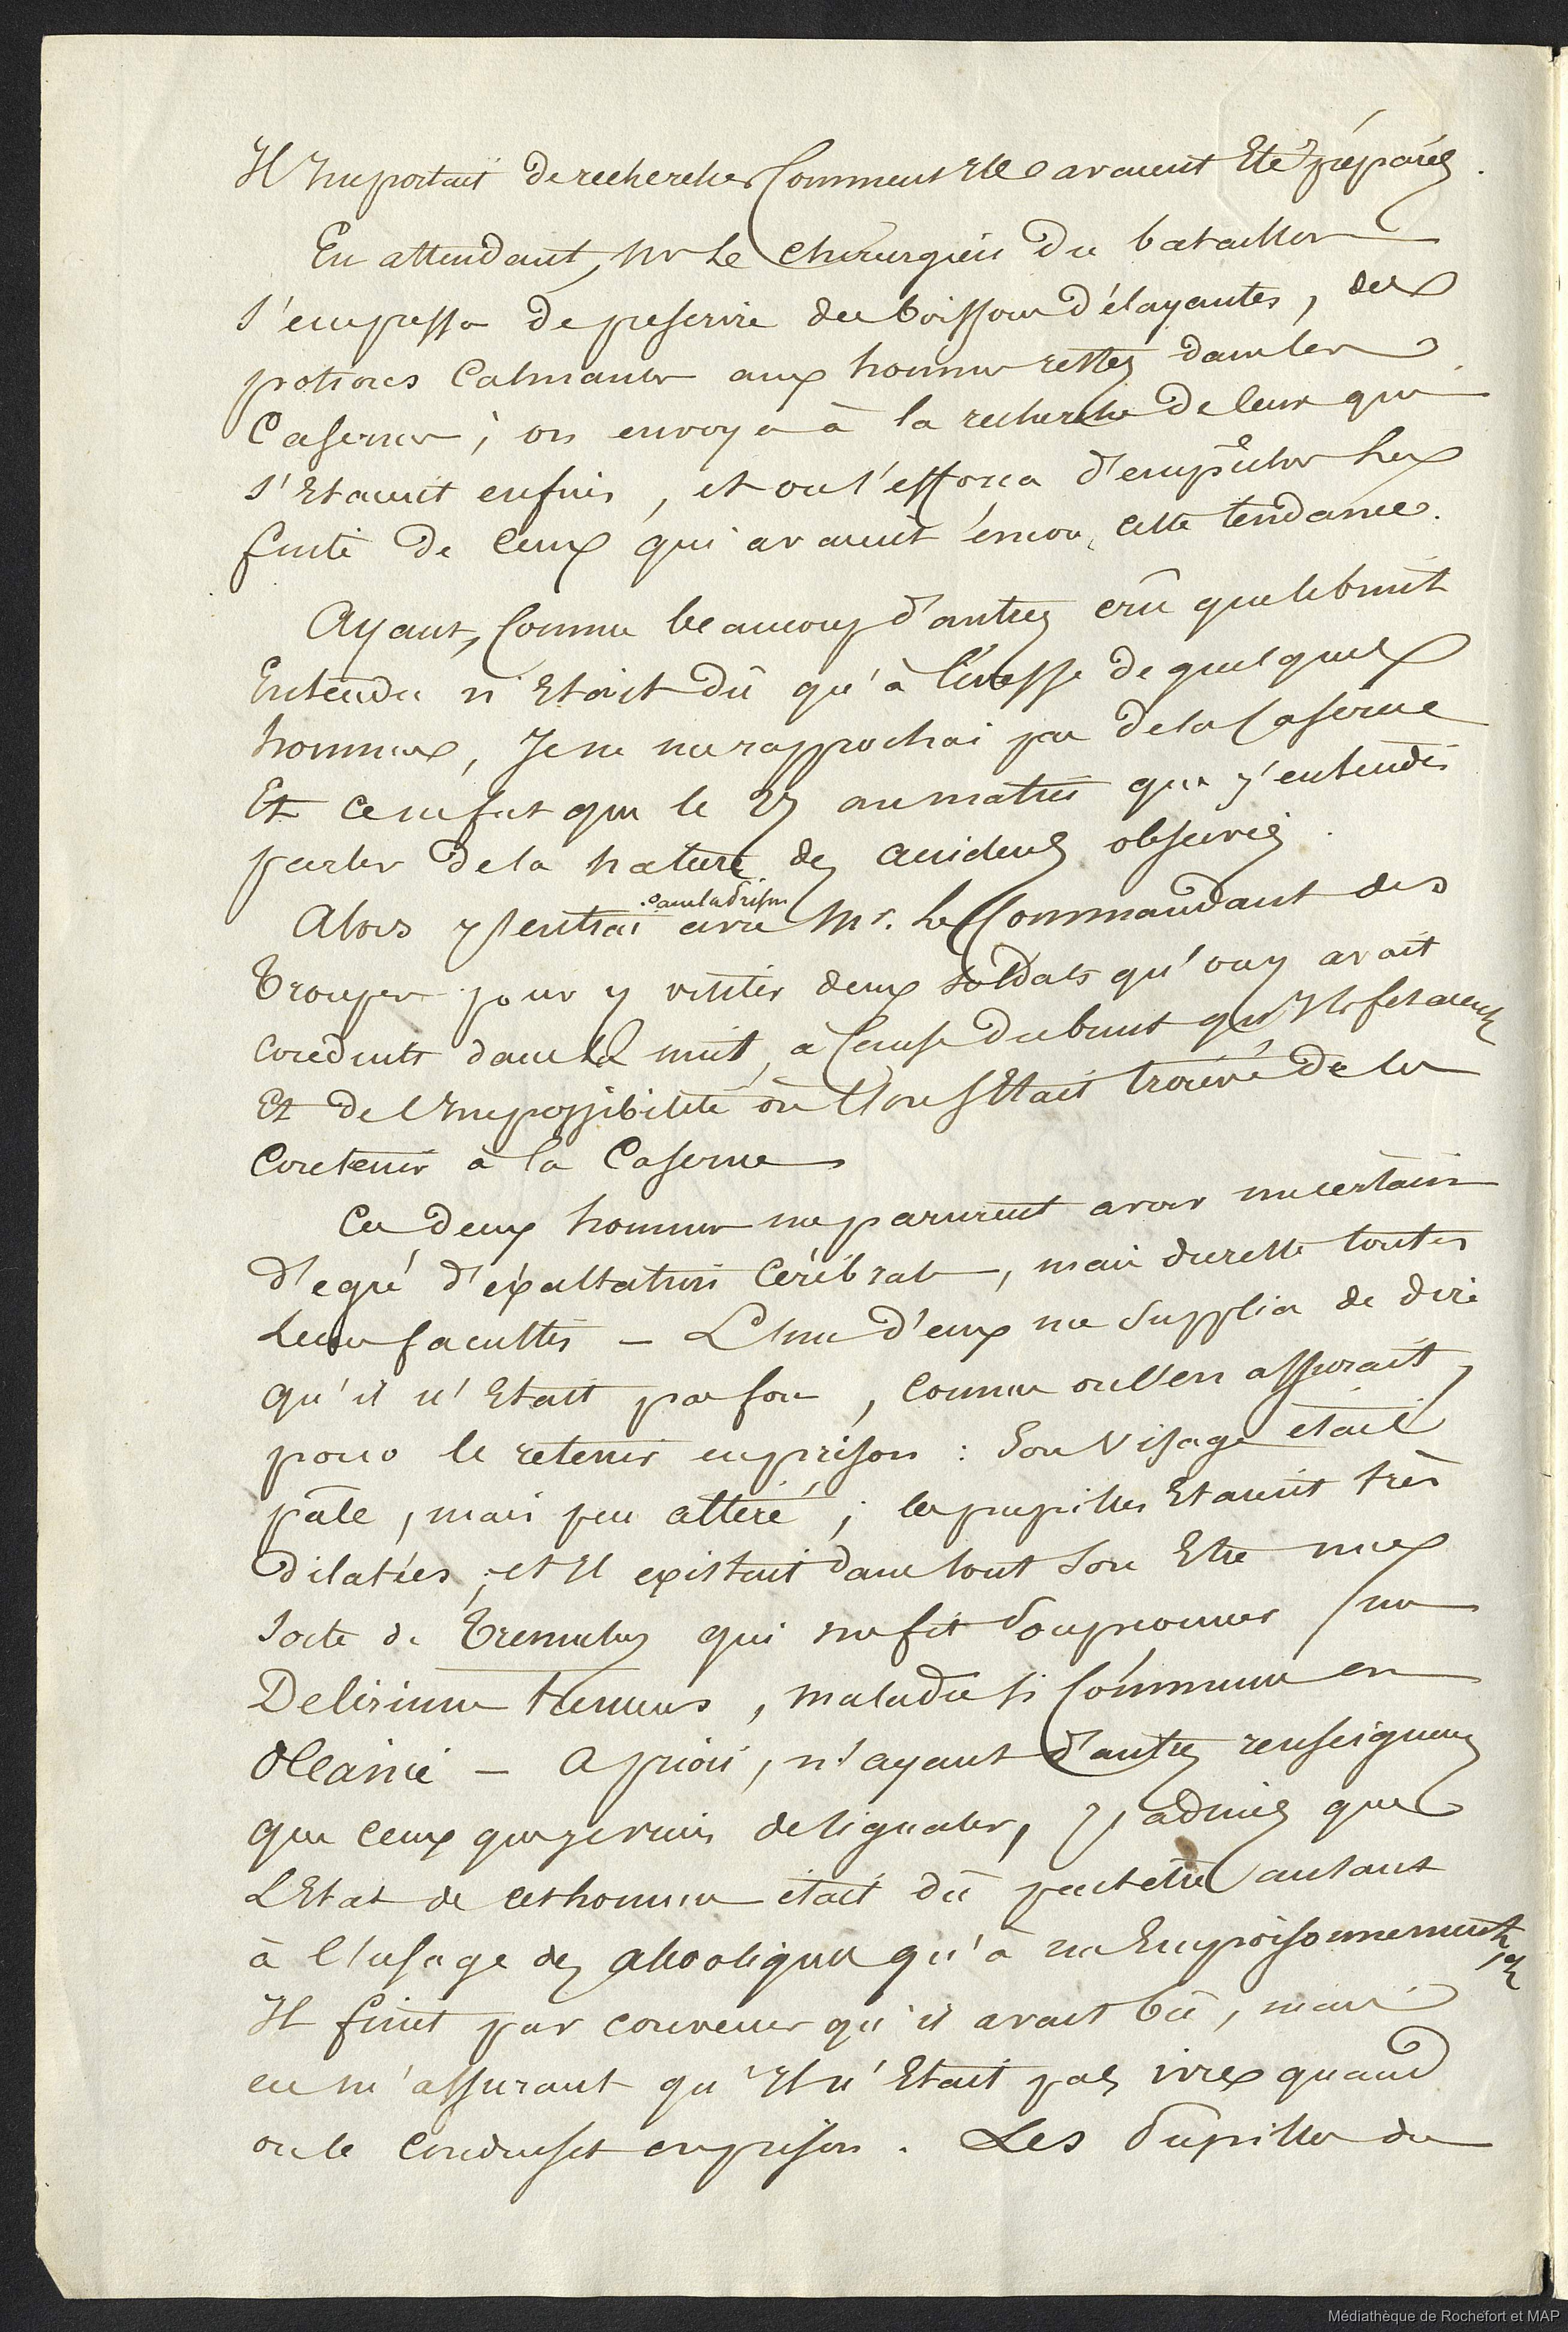 Il Importait de rechercher Comment Elles avaient Eté préparées.
En attendant, Mr Le Chirurgien Du bataillon
s'empressa de prescrire des boissons délayantes, des
potions Calmantes aux hommes restés dans les
Casernes; on envoya à la recherche de ceux qui
s'Etaient enfuis, et on s'efforça d'empêcher la
fuite de Ceux qui avaient encore cette tendance.
Ayant, Comme beaucoup d'autres crû que le bruit
Entendu n'Etait dû qu'à l'ivresse de quelques
hommes, Je ne me rapprochai pas de la Caserne
Et ce ne fut que le 27 au matin que j'entendis
parler de la nature des accidens observés.
dans la prison
Alors j'entrai avec Mr. Le Commandant des
Troupes pour y visiter deux soldats qu'on y avait
conduits dans la nuit, à Cause du bruit qu'Ils fesaient
Et de l'Impossibilité où l'on s'Etait trouvé de les
Contenir à la Caserne
Ces deux hommes me parurent avoir un certain
d'egré d'éxaltation Cérébrale, mais du reste toutes
Leurs facultés - L'Un d'eux me Supplia de dire
qu'il n'Etait pas fou, comme on l'en assurait,
pour le retenir en prison: Son Visage était
pâle, mais peu altéré; les pupilles Etaient très
dilatées, et Il existait dans tout Son Etre une
Sorte de Tremulus qui me fit Soupçonner un
Delirium tremens, maladie si Commune en
Océanie - A priori, n'ayant d'autres renseignemens
que ceux que je viens de signaler, j'admis que
L'Etat de cet homme était dû peut etre autant
à l'usage des alcooliques qu'à un Empoisonnement,
Il finit par convenir qu'il avait bû, mais
en m'assurant qu'Il n'Etait pas ivre quand
on le Conduisit en prison. Les Pupilles du
Médiathèque de Rochefort et MAP